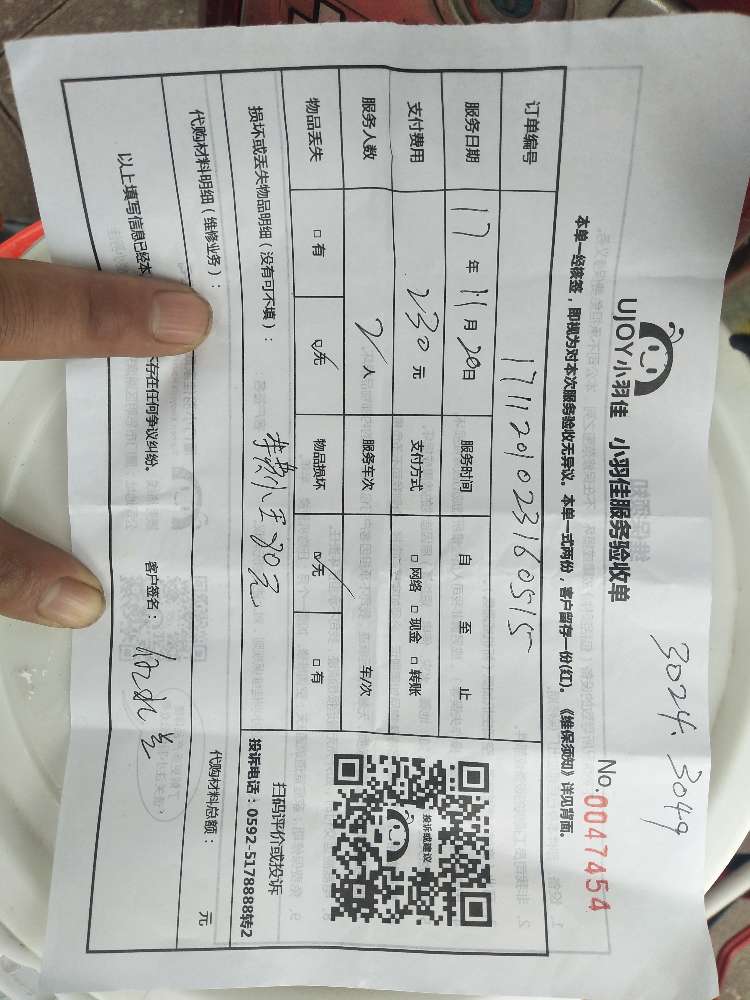 3024. 3049
UJOY小羽佳 小羽佳服务验收单
No.0047454
本单一经核签，即视为对本次服务验收无异议。本单一式两份，客户留存一份(红)。《维保须知》详见背面。
订单编号 1711201023160515
服务日期 17年11月20日 服务时间 自 至 止
支付费用 230元 支付方式 □网络 □现金 □转账
服务人数 2人 服务车次 车/次
物品丢失 □有 ☑无 物品损坏 ☑无 □有
投诉或建议
扫码评价或投诉
投诉电话：0592-5178888转2
损坏或丢失物品明细（没有可不填）：
80元
代购材料明细（维修业务）：
代购材料总额： 元
以上填写信息已经本
存在任何争议纠纷。
客户签名：